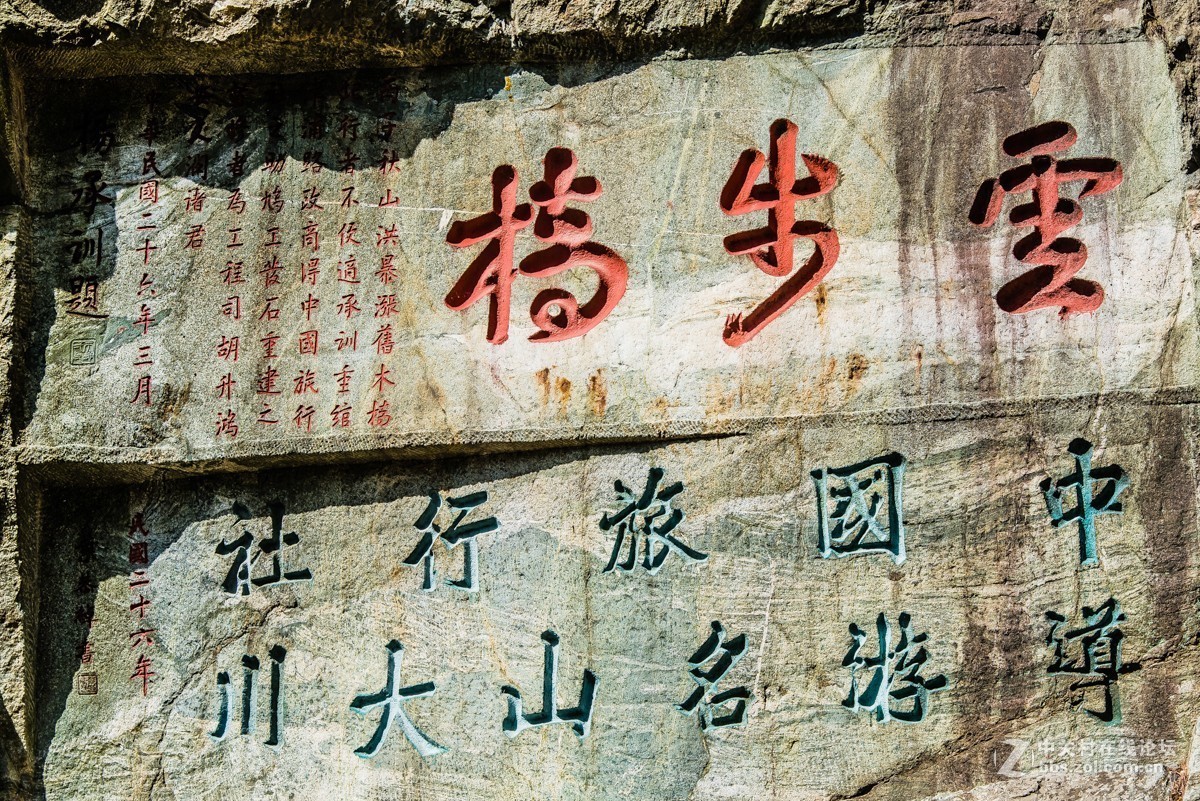 雲步橋
秋山洪暴漲舊木橋
行者不便適承訓重綰
路政商得中國旅行
助鳩工裝石重建之
者為工程司胡升鴻
君
華民國二十六年三月
承訓題
中國旅行社
導游名山大川
民國二十六年
中关村在线论坛
bbs.zol.com.cn